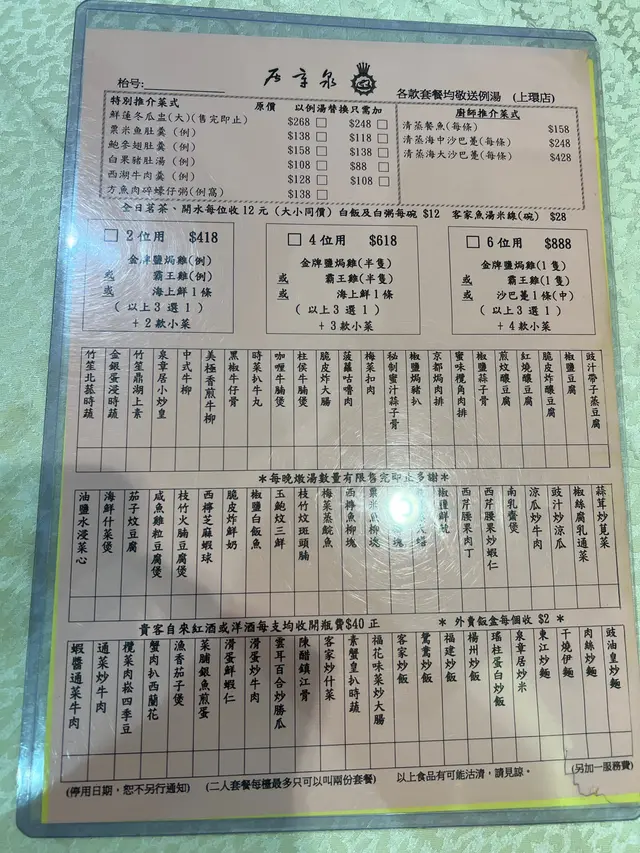 泉章居
枱号:
各款套餐均敬送例湯 (上環店)
特別推介菜式 原價 以例湯替換只需加
鮮蓮冬瓜盅(大)(售完即止) $268 $248
粟米魚肚羹 (例) $138 $118
鮑參翅肚羹 (例) $158 $138
白果豬肚湯 (例) $108 $88
西湖牛肉羹 (例) $128 $108
方魚肉碎蠔仔粥(例窩) $138
廚師推介菜式
清蒸鱉魚(每條) $158
清蒸海中沙巴躉(每條) $248
清蒸海大沙巴躉(每條) $428
全日茗茶、開水每位收 12 元 (大小同價) 白飯及白粥每碗 $12 客家魚湯米線(碗) $28
2 位用 $418
金牌鹽焗雞(例)
或 霸王雞(例)
或 海上鮮 1 條
( 以上 3 選 1 )
+ 2 款小菜
4 位用 $618
金牌鹽焗雞(半隻)
或 霸王雞(半隻)
或 海上鮮 1 條
( 以上 3 選 1 )
+ 3 款小菜
6 位用 $888
金牌鹽焗雞(1 隻)
或 霸王雞(1 隻)
或 沙巴躉 1 條(中)
( 以上 3 選 1 )
+ 4 款小菜
豉汁帶子蒸豆腐
椒鹽豆腐
脆皮炸釀豆腐
紅燒釀豆腐
煎炆釀豆腐
椒鹽蒜子骨
蜜味欖角肉排
京都焗肉排
椒鹽焗豬扒
秘制蜜汁蒜子骨
梅菜扣肉
菠蘿咕嚕肉
脆皮炸大腸
柱侯牛腩煲
咖喱牛腩煲
時菜扒牛丸
黑椒牛仔骨
美極香煎牛柳
中式牛柳
泉章居小炒皇
竹笙鼎湖上素
金銀蛋浸時蔬
竹笙北菇時蔬
*每晚燉湯數量有限售完即止多謝*
蒜茸炒莧菜
椒絲腐乳通菜
豉汁炒涼瓜
涼瓜炒牛肉
南乳齋煲
西芹腰果炒蝦仁
西芹腰果肉丁
椒鹽鮮魷
粟米魚柳塊
西檸魚柳塊
梅菜蒸鯇魚
枝竹炆斑頭腩
玉鮑炆三鮮
椒鹽白飯魚
脆皮炸鮮奶
西檸芝麻蝦球
枝竹火腩豆腐煲
咸魚雞粒豆腐煲
茄子炆豆腐
海鮮什菜煲
油鹽水浸菜心
貴客自來紅酒或洋酒每支均收開瓶費$40 正
* 外賣飯盒每個收 $2 *
豉油皇炒麵
肉絲炒麵
干燒伊麵
東江炒麵
泉章居炒米
瑤柱蛋白炒飯
楊州炒飯
福建炒飯
鴛鴦炒飯
客家炒飯
福花味菜炒大腸
素蟹皇扒時蔬
客家炒什菜
陳醋鎮江骨
雲耳百合炒勝瓜
滑蛋炒牛肉
滑蛋鮮蝦仁
菜脯銀魚煎蛋
漁香茄子煲
蟹肉扒西蘭花
欖菜肉崧四季豆
通菜炒牛肉
蝦醬通菜牛肉
(停用日期,恕不另行通知) (二人套餐每檯最多只可以叫兩份套餐) 以上食品有可能沽清,請見諒。 (另加一服務費)